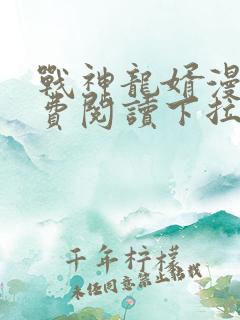 戰神龍婿漫
費閱讀下拉
千年梓檬
未经同意禁止搭载